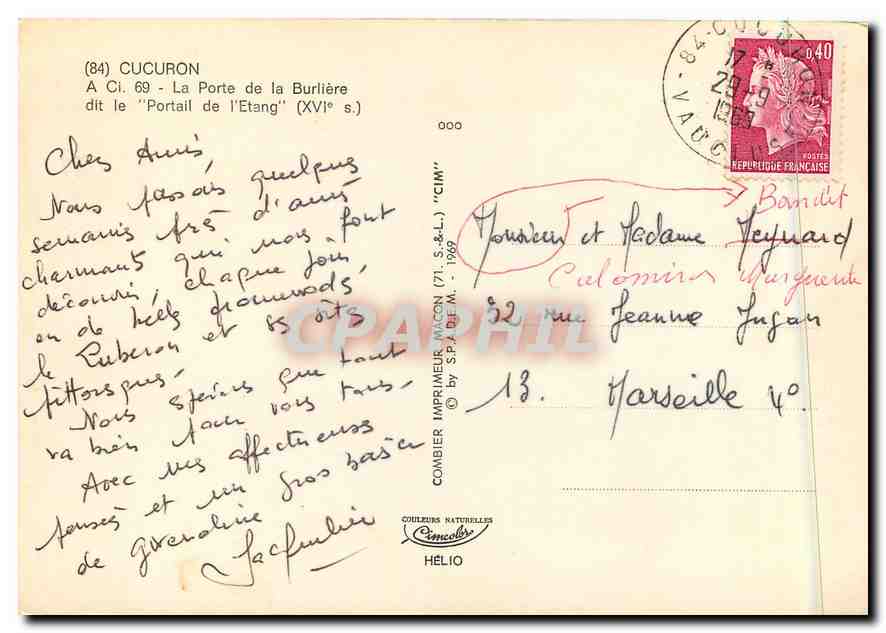 (84) CUCURON
A Ci. 69 - La Porte de la Burlière
dit le "Portail de l'Etang" (XVIe s.)
Chers Amis,
Nous passons quelques
semaines près d'amis
charmants qui nous font
découvrir, chaque jour
en de belles promenades,
le Luberon et ses sites
pittoresques.
Nous espérons que tout
va bien pour vous tous.
Avec nos affectueuses
pensées et un gros baiser
de Gwendoline
Jacqueline
ooo
COMBIER IMPRIMEUR MACON (71. S.-&-L.) "CIM"
© by S.P.A.D.E.M. - 1969
COULEURS NATURELLES
Cimcolor
HÉLIO
84-CUCURON
17 - *
29-9
1969
VAUCLUSE
0,40
POSTES
REPUBLIQUE FRANÇAISE
Bandit
Monsieur et Madame Meynard
Marguerite
32 rue Jeanne Jugan
13. Marseille 4°.
CPAPHIL